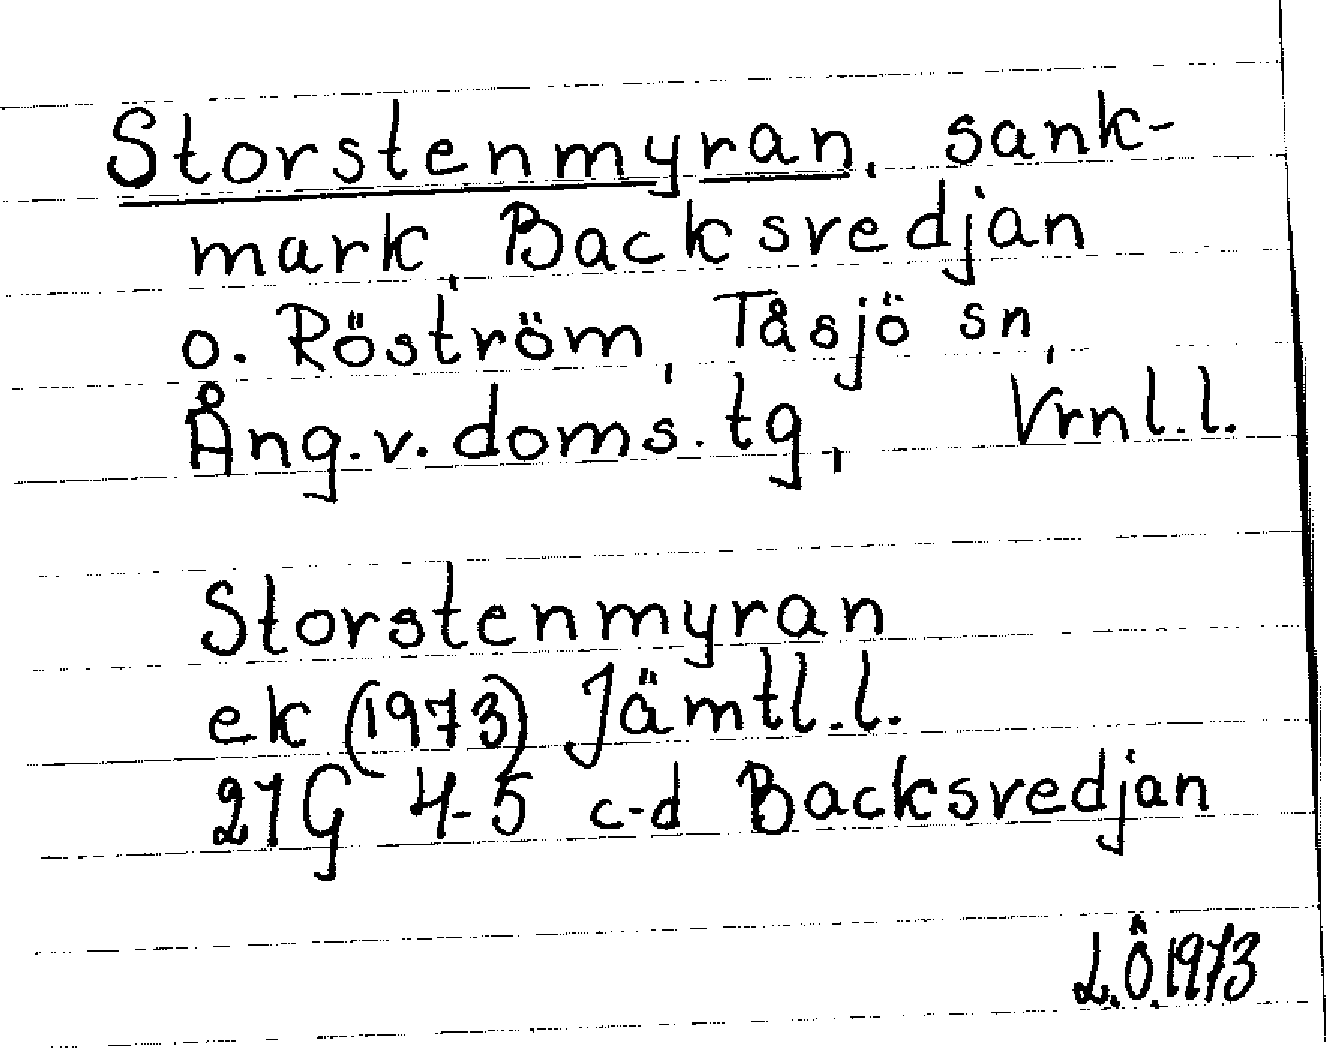 Storstenmyran, sank-
mark, Backsredjan
o. Röström, Tåsjö sn,
Ång.v. doms. tg, Vrnl.l.
Storstenmyran
ek (1973) Jämtl.l.
21G 4-5 c-d Backsredjan
L.Ö.1973